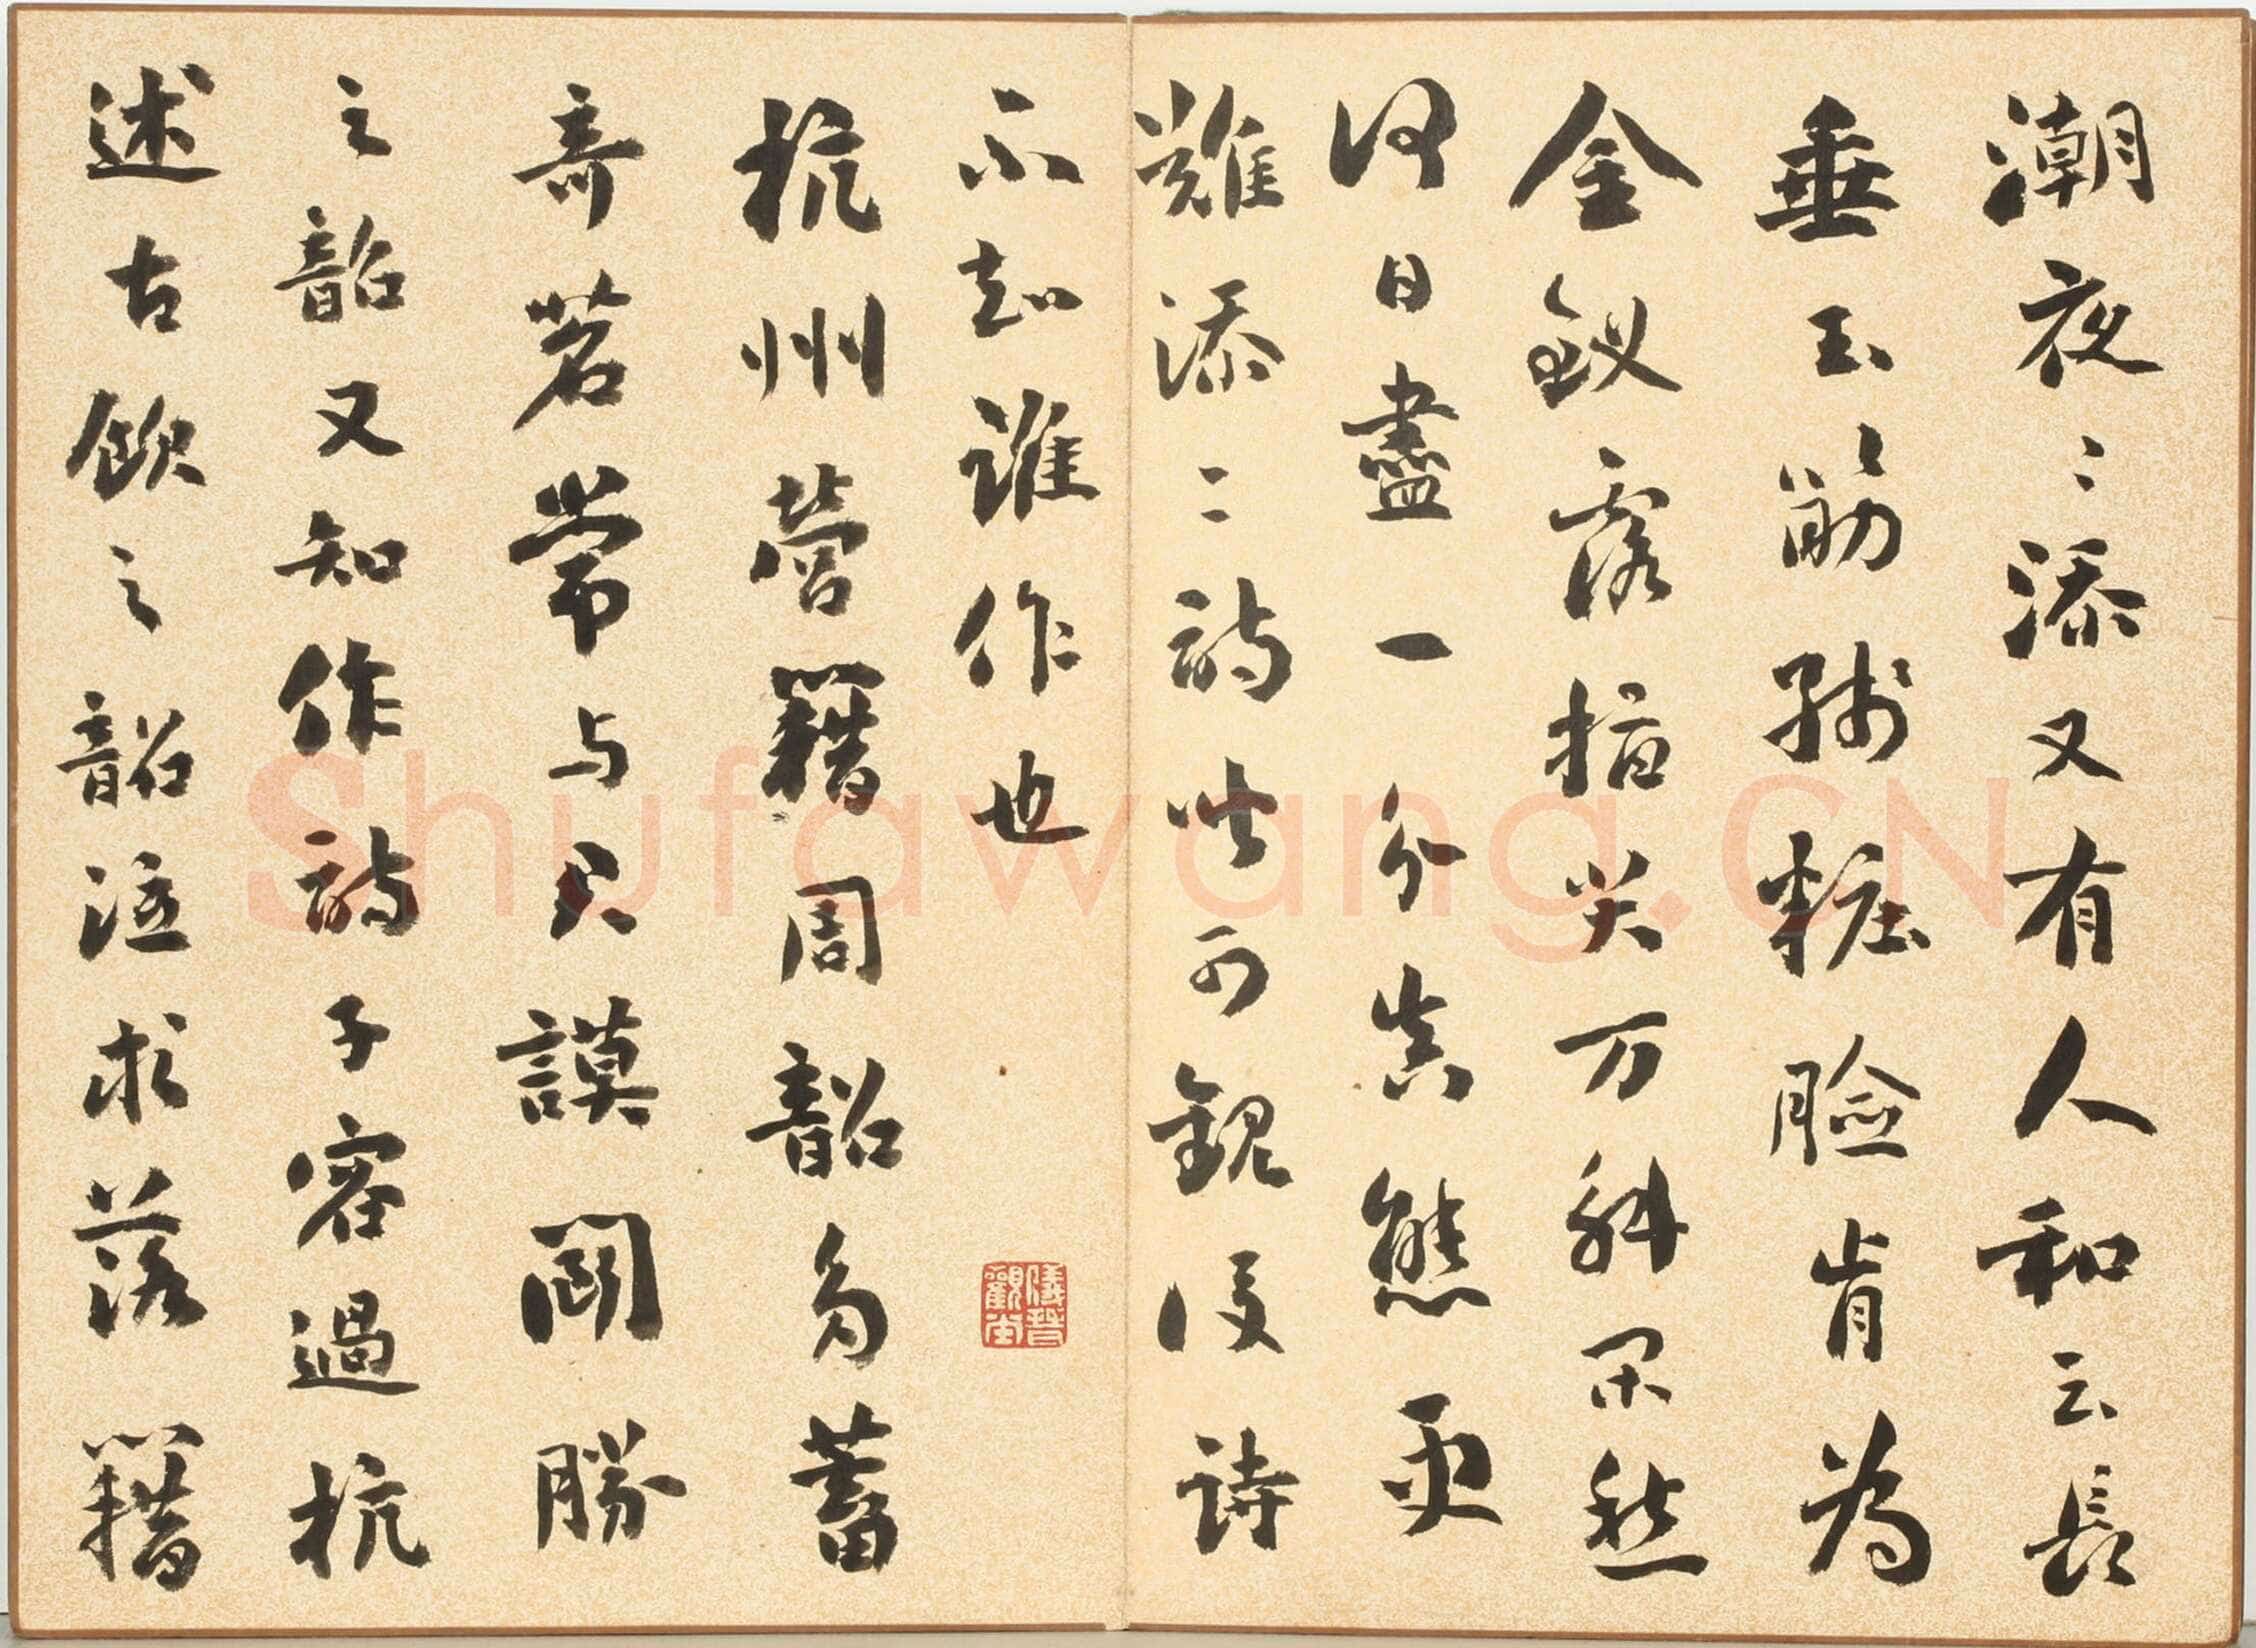 潮夜々添又有人和云長
垂玉筯殘粧臉肯為
金釵露指尖万斛閑愁
何日盡一分真態更
難添二詩皆可觀後詩
不知誰作也
杭州營籍周韶多蓄
奇茗常与君謨鬬勝
之韶又知作詩子容過杭
述古飲之韶泣求落籍
Shufawang.CN